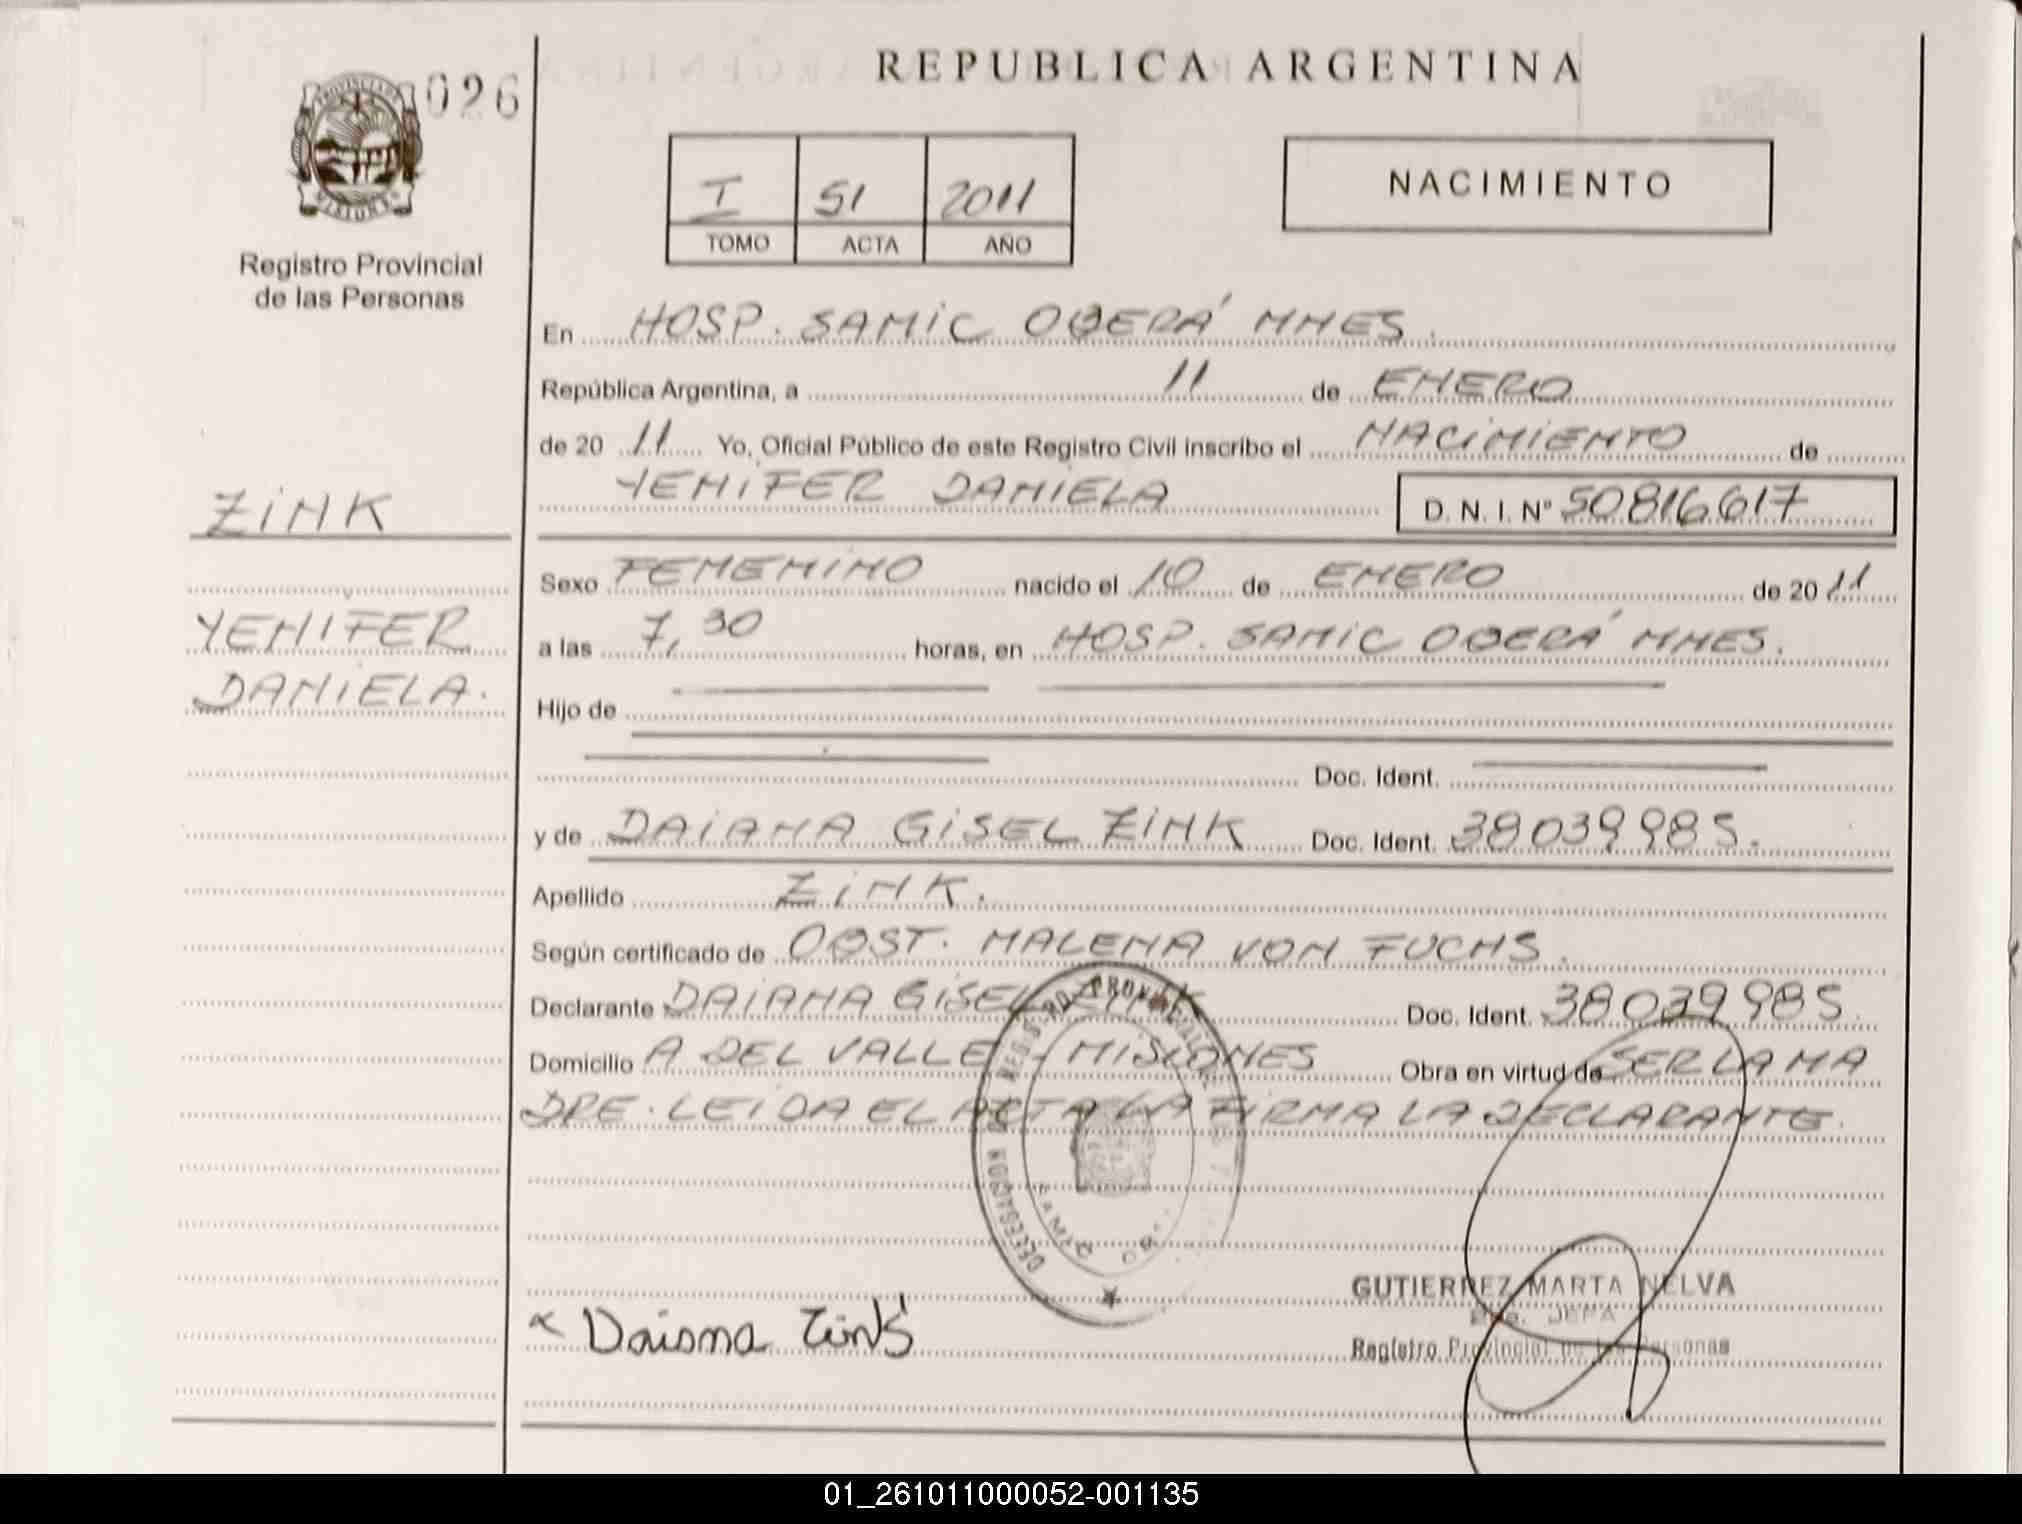 REPUBLICA ARGENTINA
026
PROVINCIA DE MISIONES
Registro Provincial
de las Personas
I 51 2011
TOMO ACTA AÑO
NACIMIENTO
En HOSP. SAMIC OBERÁ MNES.
República Argentina, a 11 de ENERO
de 20 11 Yo, Oficial Público de este Registro Civil inscribo el NACIMIENTO de
YENIFER DANIELA D. N. I. Nº 50816617
ZINK
YENIFER
DANIELA.
Sexo FEMENINO nacido el 10 de ENERO de 20 11
a las 7,30 horas, en HOSP. SAMIC OBERÁ MNES.
Hijo de
Doc. Ident.
y de DAIANA GISEL ZINK Doc. Ident. 38039985.
Apellido ZINK.
Según certificado de OBST. MALENA VON FUCHS.
Declarante DAIANA GISEL ZINK Doc. Ident. 38039985.
Domicilio A DEL VALLE - MISIONES Obra en virtud de SER LA MA
DRE. LEIDA EL ACTA LA FIRMA LA DECLARANTE.
Daiana Zink
GUTIERREZ MARTA NELVA
JEFA
Registro Provincial de las Personas
01_261011000052-001135